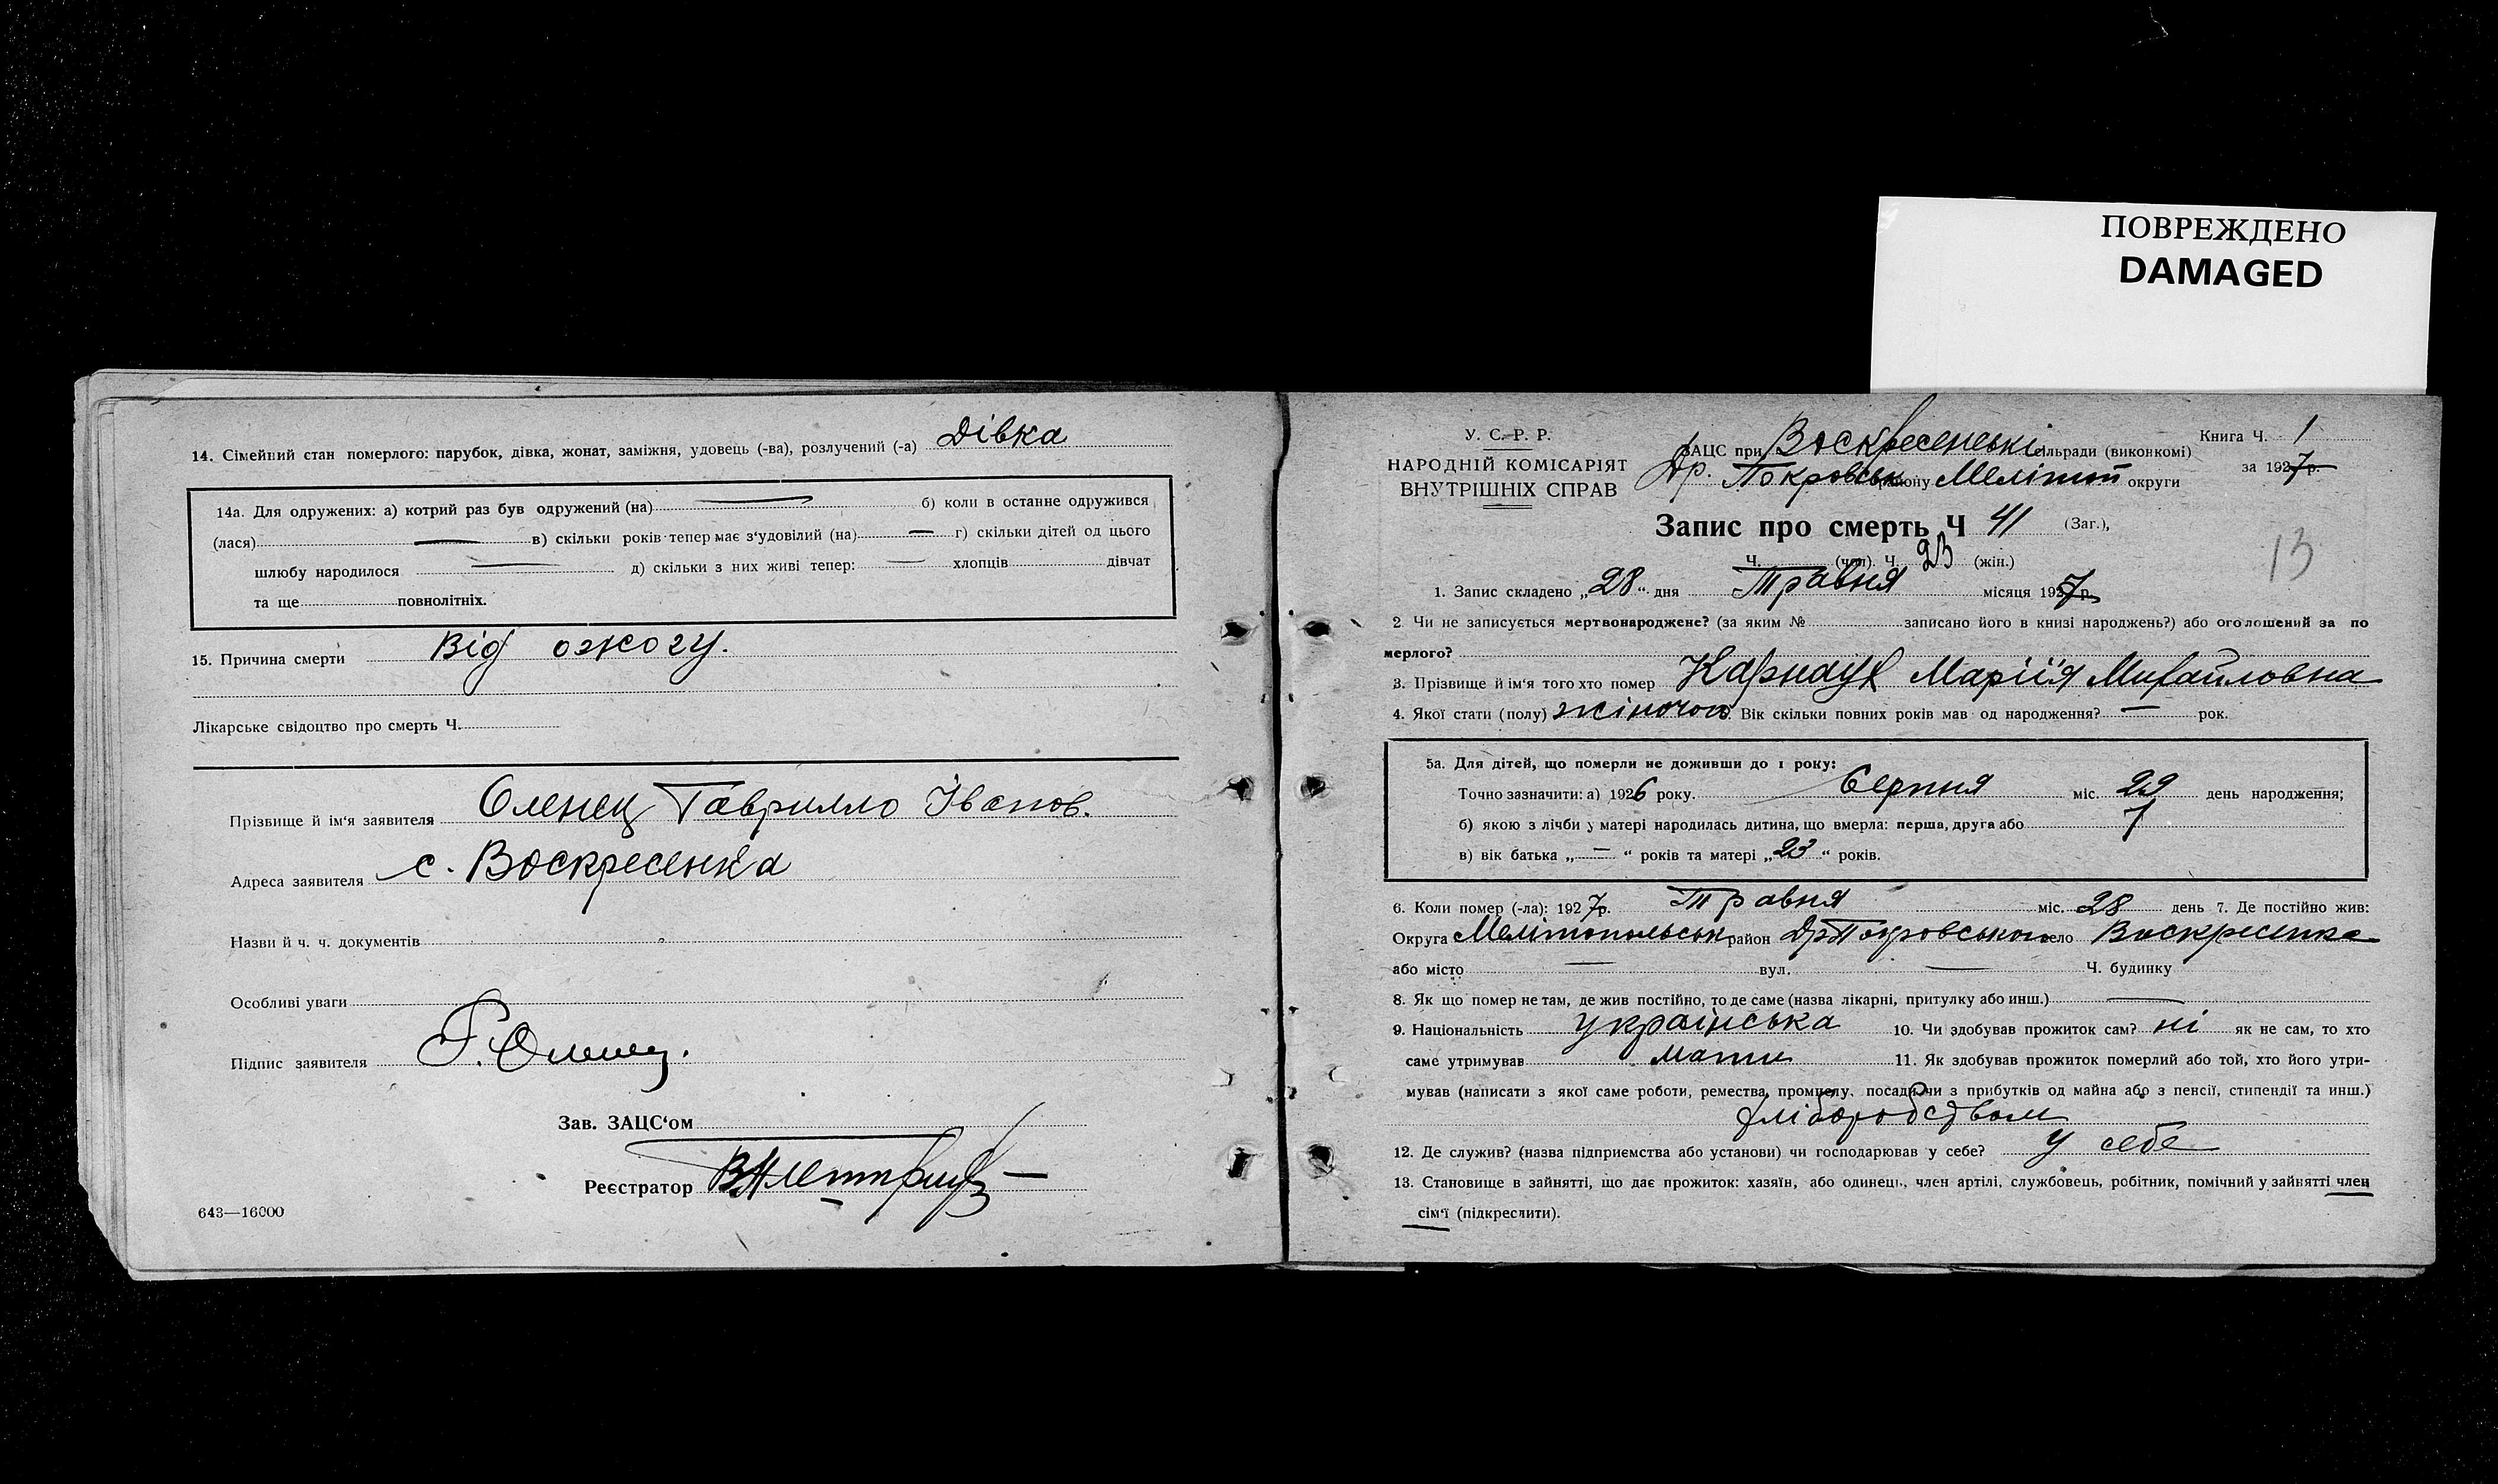 ПОВРЕЖДЕНО
DAMAGED
14. Сімейний стан померлого: парубок, дівка, жонат, заміжня, удовець (-ва), розлучений (-а) Дівка
14а. Для одружених: а) котрий раз був одружений (на) — б) коли в останнє одружився
(лася) — в) скільки років тепер має з'удовілий (на) — г) скільки дітей од цього
шлюбу народилося — д) скільки з них живі тепер: — хлопців дівчат
та ще повнолітніх.
15. Причина смерти Від ожогу.
Лікарське свідоцтво про смерть Ч.
Прізвище й ім'я заявителя Оленец Гаврилло Іванов.
Адреса заявителя с. Воскресенка
Назви й ч. ч. документів
Особливі уваги
Підпис заявителя Г. Оленец.
Зав. ЗАЦС'ом
Реєстратор
643—16000
У. С. Р. Р.
НАРОДНІЙ КОМІСАРІЯТ
ВНУТРІШНІХ СПРАВ
ЗАЦС при Воскресенські сільради (виконкомі)
Др. Покровськ району Меліт округи
Книга Ч. 1
за 1927 р.
Запис про смерть Ч 41 (Заг.),
Ч. (чол). Ч. 23 (жін.)
13
1. Запис складено „28" дня Травня місяця 1927 р.
2 Чи не записується мертвонароджене? (за яким № записано його в книзі народжень?) або оголошений за по
мерлого?
3. Прізвище й ім'я того хто помер Карнаух Марія Михайловна
4. Якої стати (полу) жіночої. Вік скільки повних років мав од народження? — рок.
5а. Для дітей, що померли не доживши до 1 року:
Точно зазначити: а) 1926 року. Серпня міс. 22 день народження;
б) якою з лічби у матері народилась дитина, що вмерла: перша, друга або 1
в) вік батька „—" років та матері „23" років.
6. Коли помер (-ла): 1927 р. Травня міс. 28 день 7. Де постійно жив:
Округа Мелітопольськ район Др Покровського село Воскресенка
або місто — вул. — Ч. будинку
8. Як що помер не там, де жив постійно, то де саме (назва лікарні, притулку або инш.) —
9. Національність українська 10. Чи здобував прожиток сам? ні як не сам, то хто
саме утримував мати 11. Як здобував прожиток померлий або той, хто його утри-
мував (написати з якої саме роботи, ремества, промислу, посади чи з прибутків од майна або з пенсії, стипендії та инш.)
хліборобством
12. Де служив? (назва підприємства або установи) чи господарював у себе? у себе
13. Становище в зайнятті, що дає прожиток: хазяїн, або одинець, член артілі, службовець, робітник, помічний у зайнятті член
сім'ї (підкреслити).